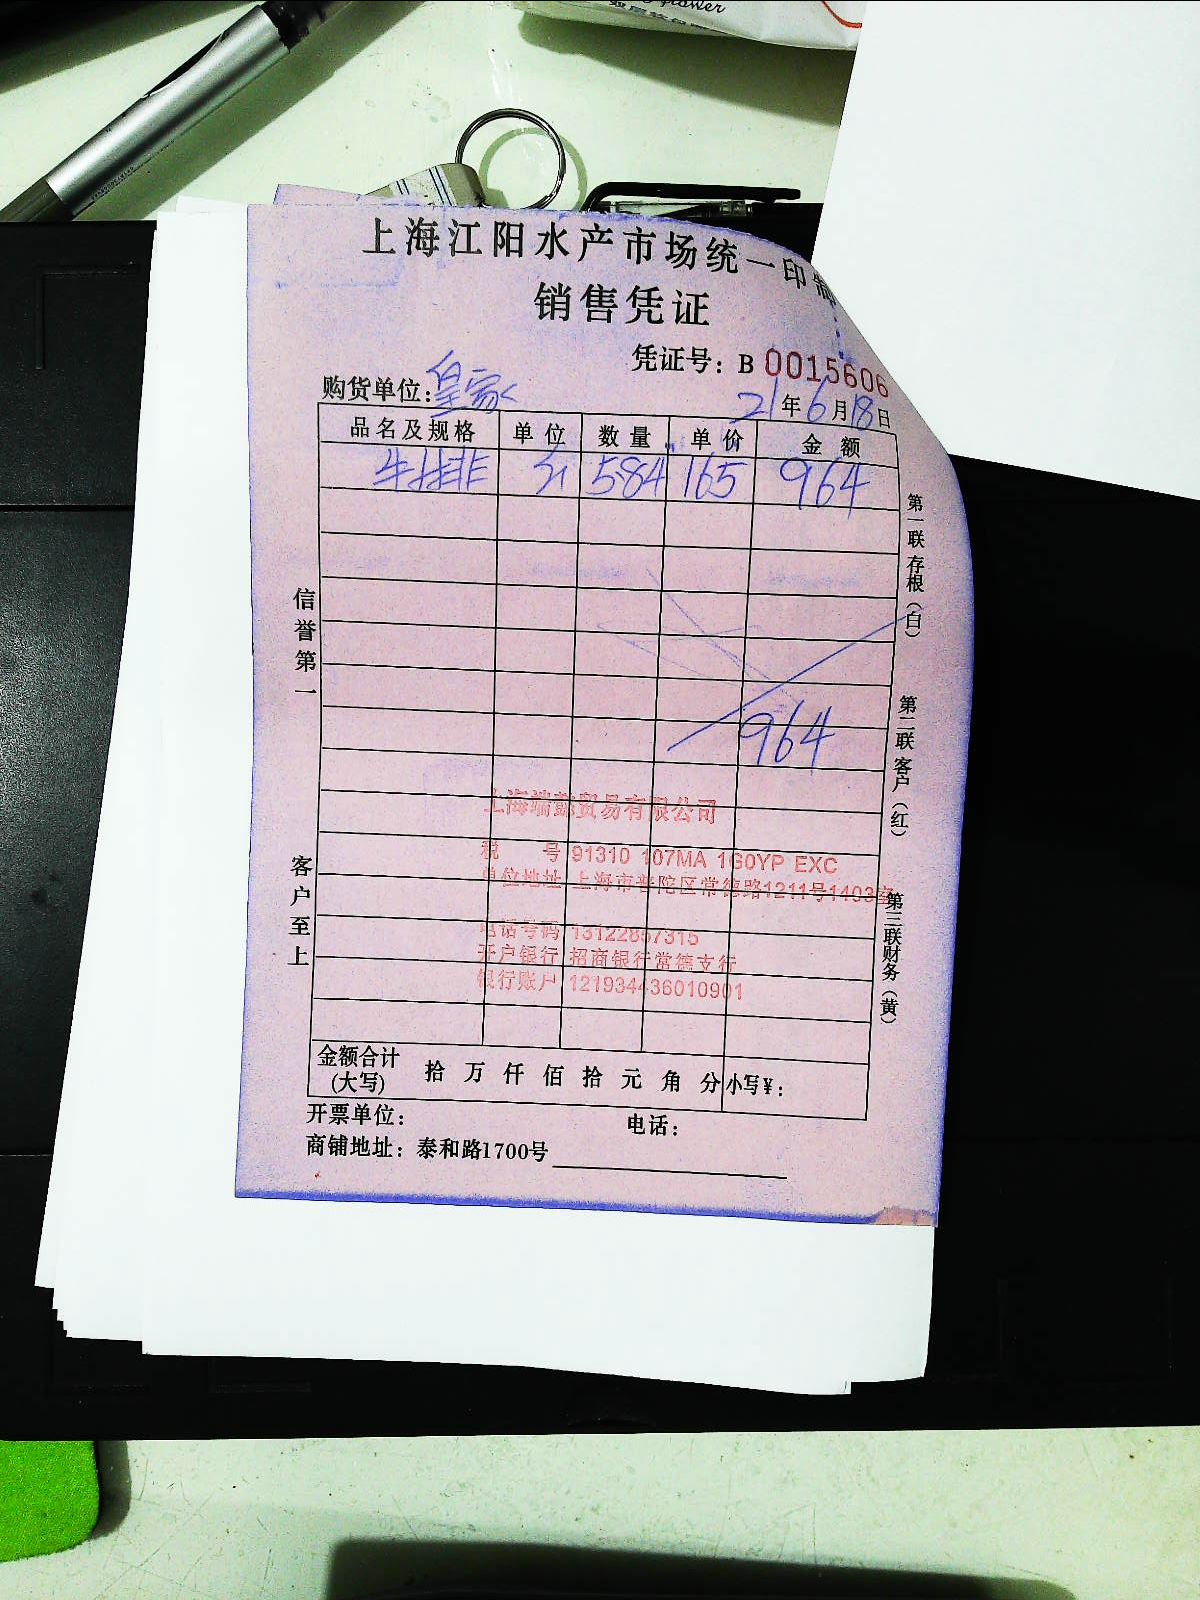 flower
上海江阳水产市场统一印制
销售凭证
凭证号：B 0015606
购货单位：皇家
21年6月18日
品名及规格 单位 数量 单价 金额
牛排 5.84 165 964
964
信誉第一
客户至上
第一联存根（白）
第二联客户（红）
第三联财务（黄）
上海端懿贸易有限公司
税 号 91310 107MA 1G0YP EXC
单位地址 上海市普陀区常德路1211号1403室
电话号码 13122857315
开户银行 招商银行常德支行
银行账户 121934436010901
金额合计（大写） 拾 万 仟 佰 拾 元 角 分 小写¥：
开票单位： 电话：
商铺地址：泰和路1700号